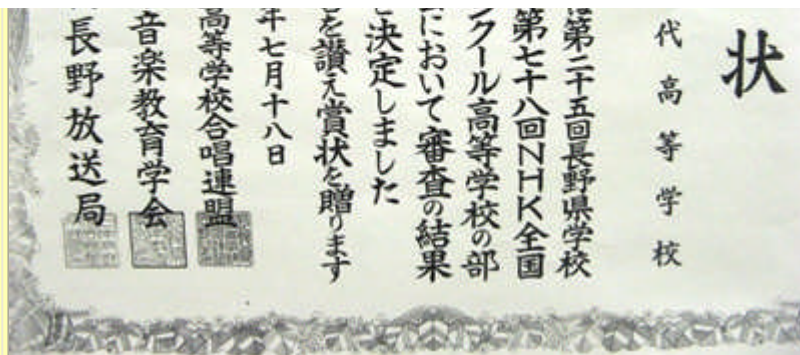 状
代高等学校
は第二十五回長野県学校
第七十八回NHK全国
ンクール高等学校の部
において審査の結果
決定しました
を讃え賞状を贈ります
年七月十八日
高等学校合唱連盟
音楽教育学会
長野放送局